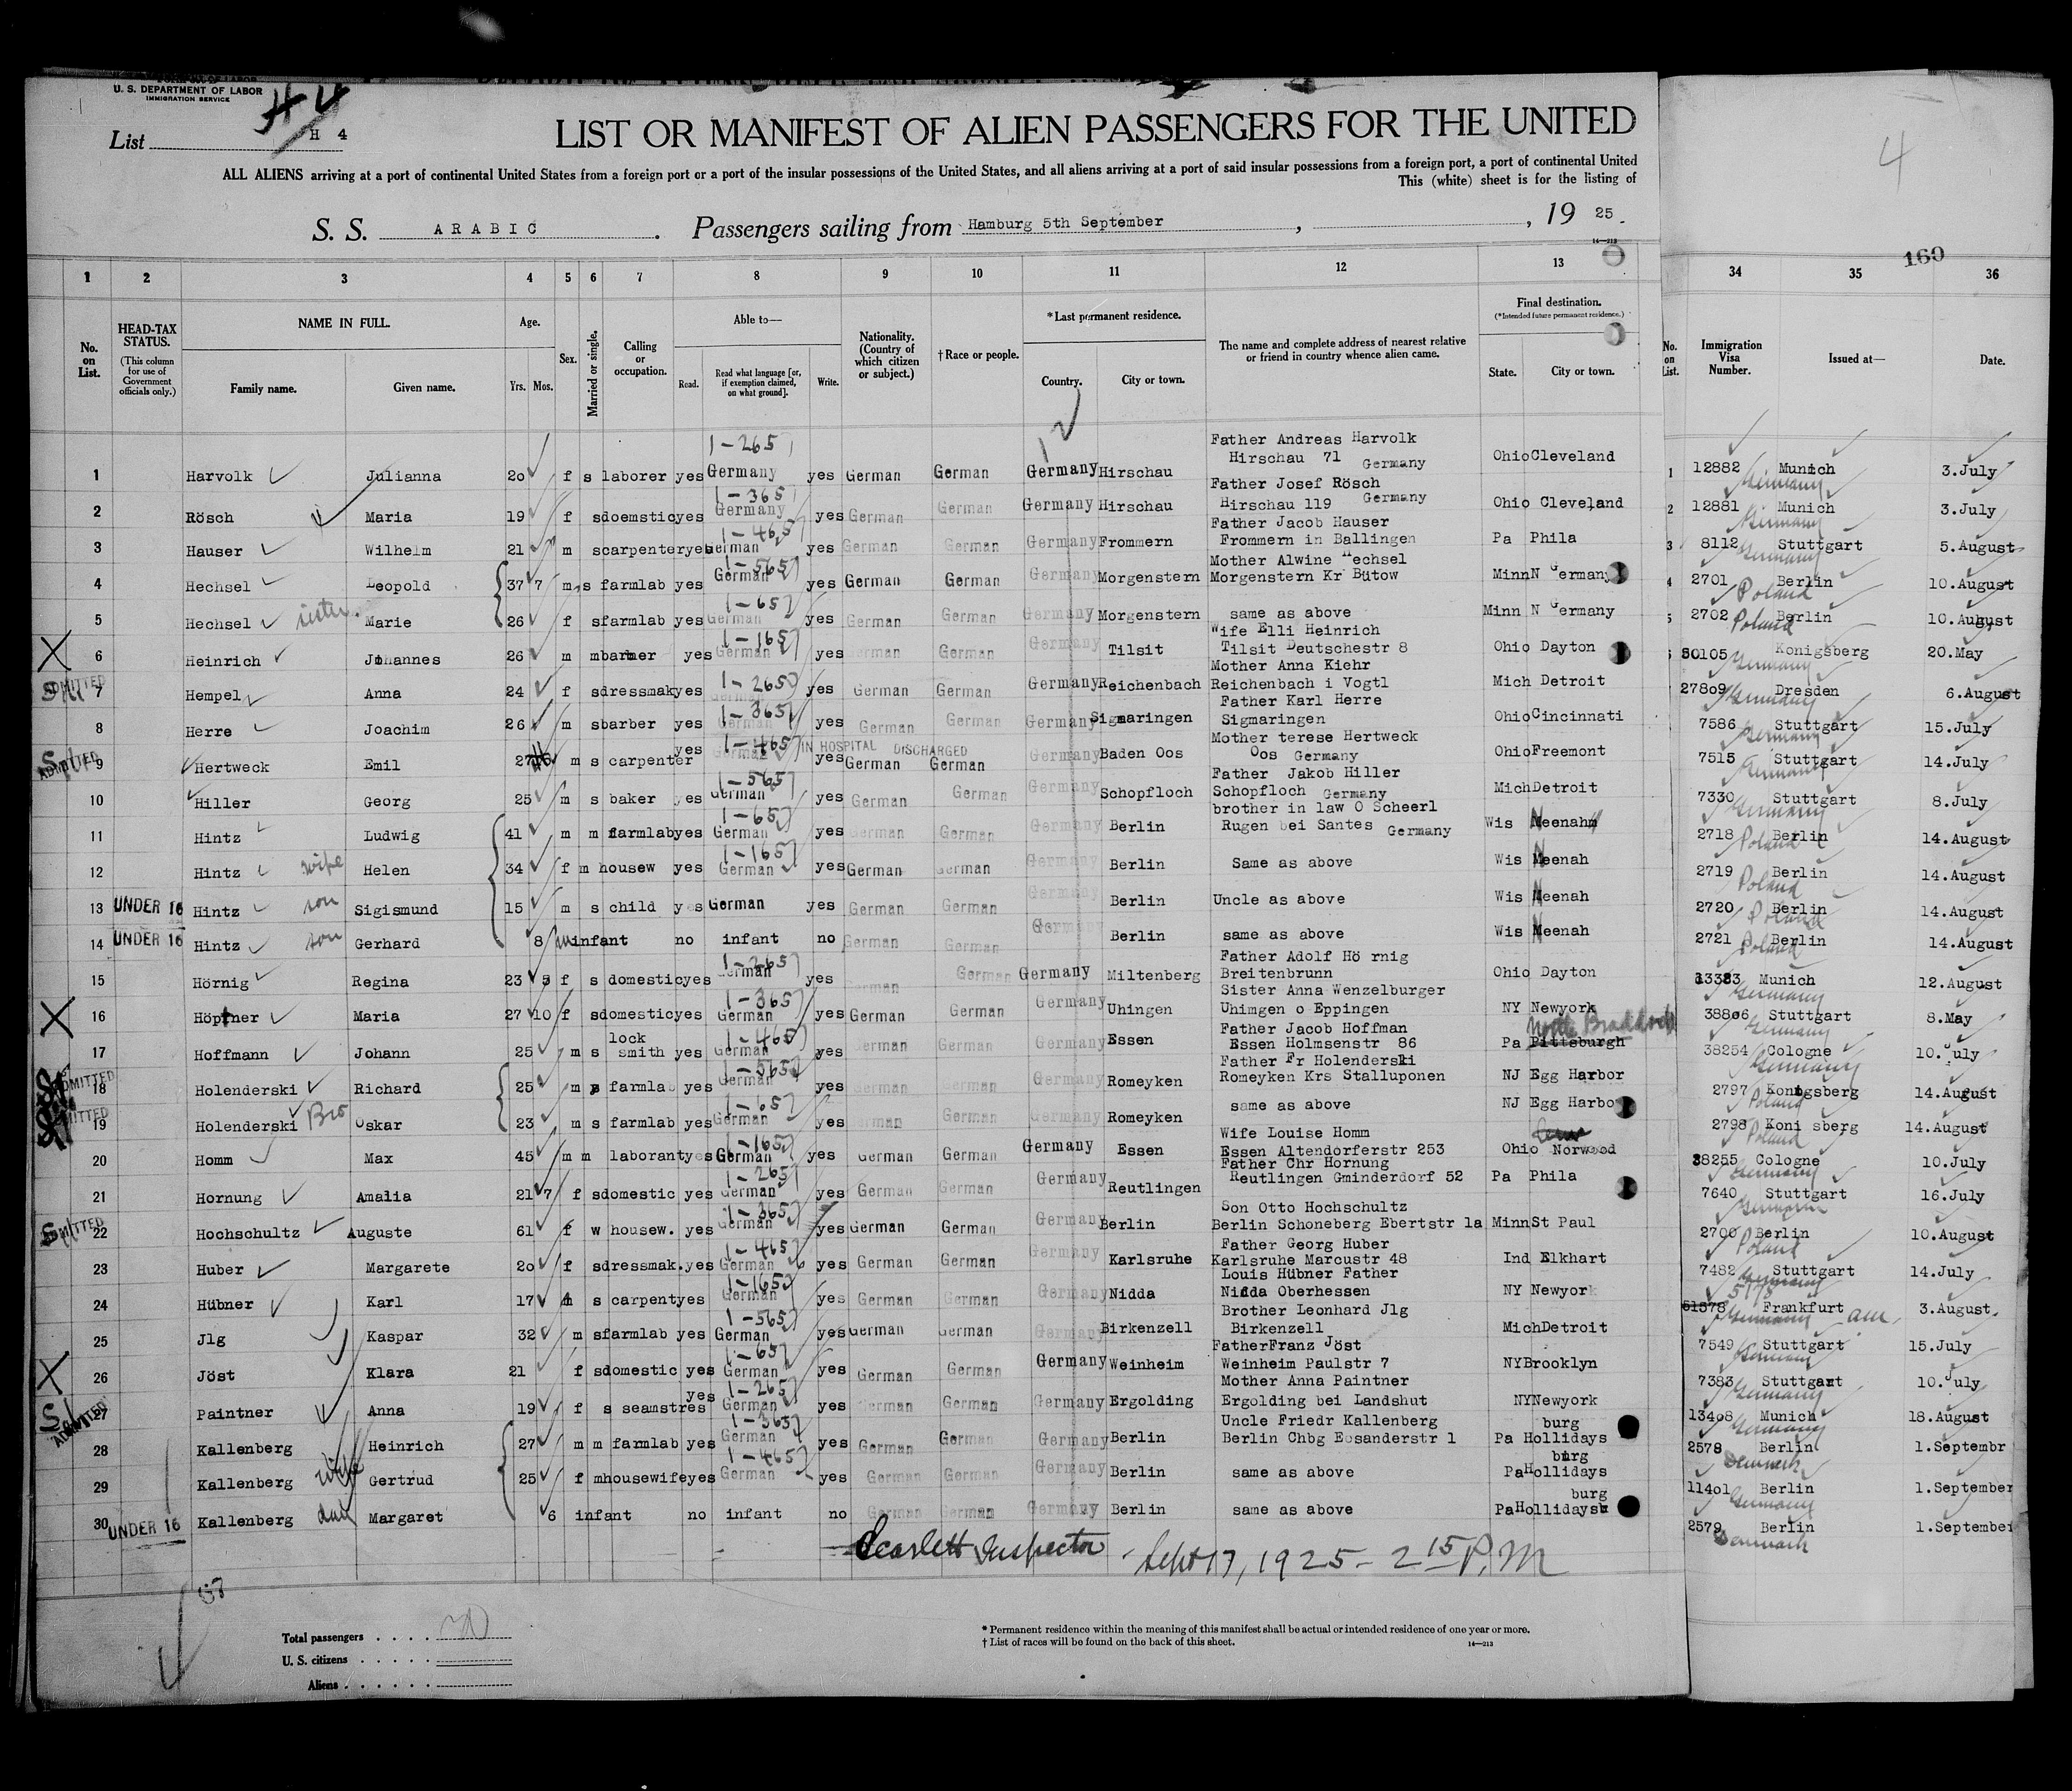 U. S. DEPARTMENT OF LABOR
IMMIGRATION SERVICE
List H 4
LIST OR MANIFEST OF ALIEN PASSENGERS FOR THE UNITED
4
ALL ALIENS arriving at a port of continental United States from a foreign port or a port of the insular possessions of the United States, and all aliens arriving at a port of said insular possessions from a foreign port, a port of continental United
This (white) sheet is for the listing of
S. S. ARABIC. Passengers sailing from Hamburg 5th September, , 19 25.
14—213
160
1 2 3 4 5 6 7 8 9 10 11 12 13 34 35 36
No. on List. HEAD-TAX STATUS. (This column for use of Government officials only.) NAME IN FULL. Family name. Given name. Age. Yrs. Mos. Sex. Married or single. Calling or occupation. Able to— Read. Read what language [or, if exemption claimed, on what ground]. Write. Nationality. (Country of which citizen or subject.) † Race or people. *Last permanent residence. Country. City or town. The name and complete address of nearest relative or friend in country whence alien came. Final destination. (*Intended future permanent residence.) State. City or town. No. on List. Immigration Visa Number. Issued at— Date.
1 Harvolk Julianna 20 f s laborer yes 1-265 Germany yes German German Germany Hirschau Father Andreas Harvolk Hirschau 71 Germany Ohio Cleveland 1 12882 Munich Germany 3.July
2 Rösch Maria 19 f s doemstic yes 1-365 Germany yes German German Germany Hirschau Father Josef Rösch Hirschau 119 Germany Ohio Cleveland 2 12881 Munich Germany 3.July
3 Hauser Wilhelm 21 m s carpenter yes 1-465 German yes German German Germany Frommern Father Jacob Hauser Frommern in Ballingen Pa Phila 3 8112 Stuttgart Germany 5.August
4 Hechsel Leopold 37 7 m s farmlab yes 1-565 German yes German German Germany Morgenstern Mother Alwine Hechsel Morgenstern Kr Bütow Minn N Germany 4 2701 Berlin Poland 10.August
5 Hechsel sister Marie 26 f s farmlab yes 1-65 German yes German German Germany Morgenstern same as above Minn N Germany 5 2702 Berlin Poland 10.August
X 6 Heinrich Johannes 26 m m yes 1-165 German yes German German Germany Tilsit Wife Elli Heinrich Tilsit Deutschestr 8 Ohio Dayton 30105 Konigsberg Germany 20.May
SI ADMITTED 7 Hempel Anna 24 f s dressmak yes 1-265 yes German German Germany Reichenbach Mother Anna Kiehr Reichenbach i Vogtl Mich Detroit 27809 Dresden Germany 6.August
8 Herre Joachim 26 m s barber yes 1-365 German yes German German Germany Sigmaringen Father Karl Herre Sigmaringen Ohio Cincinnati 7586 Stuttgart Germany 15.July
SI ADMITTED 9 Hertweck Emil 27 m s carpenter yes 1-465 German yes IN HOSPITAL DISCHARGED German German Germany Baden Oos Mother terese Hertweck Oos Germany Ohio Freemont 7515 Stuttgart Germany 14.July
10 Hiller Georg 25 m s baker yes 1-565 German yes German German Germany Schopfloch Father Jakob Hiller Schopfloch Germany Mich Detroit 7330 Stuttgart Germany 8.July
11 Hintz Ludwig 41 m m farmlab yes 1-65 German yes German German Germany Berlin brother in law O Scheerl Rugen bei Santes Germany Wis Neenah 2718 Berlin Poland 14.August
12 Hintz wife Helen 34 f m housew yes 1-165 German yes German German Germany Berlin Same as above Wis Neenah 2719 Berlin Poland 14.August
13 UNDER 16 Hintz son Sigismund 15 m s child yes German yes German German Germany Berlin Uncle as above Wis Neenah 2720 Berlin Poland 14.August
14 UNDER 16 Hintz son Gerhard 8 m infant no infant no German German Germany Berlin same as above Wis Neenah 2721 Berlin Poland 14.August
15 Hörnig Regina 23 5 f s domestic yes 1-265 German yes German German Germany Miltenberg Father Adolf Hö rnig Breitenbrunn Ohio Dayton 13383 Munich Germany 12.August
X 16 Höpfner Maria 27 10 f s domestic yes 1-365 German yes German German Germany Uhingen Sister Anna Wenzelburger Uhimgen o Eppingen NY Newyork 38806 Stuttgart Germany 8.May
17 Hoffmann Johann 25 m s lock smith yes 1-465 German yes German German Germany Essen Father Jacob Hoffman Essen Holmsenstr 86 Pa Pittsburgh North Braddock 38254 Cologne Germany 10.July
ADMITTED 18 Holenderski Richard 25 m s farmlab yes 1-565 German yes German German Germany Romeyken Father Fr Holenderski Romeyken Krs Stalluponen NJ Egg Harbor 2797 Konigsberg Poland 14.August
ADMITTED 19 Holenderski Bro Oskar 23 m s farmlab yes 1-65 German yes German German Germany Romeyken same as above NJ Egg Harbo 2798 Koni sberg Poland 14.August
20 Homm Max 45 m m laborant yes 1-165 German yes German German Germany Essen Wife Louise Homm Essen Altendorferstr 253 Ohio Norwood 38255 Cologne Germany 10.July
21 Hornung Amalia 21 7 f s domestic yes 1-265 German yes German German Germany Reutlingen Father Chr Hornung Reutlingen Gminderdorf 52 Pa Phila 7640 Stuttgart Germany 16.July
SI ADMITTED 22 Hochschultz Auguste 61 f w housew. yes 1-365 German yes German German Germany Berlin Son Otto Hochschultz Berlin Schoneberg Ebertstr 1a Minn St Paul 2700 Berlin Poland 10.August
23 Huber Margarete 20 f s dressmak. yes 1-465 German yes German German Germany Karlsruhe Father Georg Huber Karlsruhe Marcustr 48 Ind Elkhart 7482 Stuttgart Germany 14.July
24 Hübner Karl 17 m s carpent yes 1-165 German yes German German Germany Nidda Louis Hübner Father Nidda Oberhessen NY Newyork 51578 5178 Frankfurt am Germany 3.August.
25 Jlg Kaspar 32 m s farmlab yes 1-565 German yes German German Germany Birkenzell Brother Leonhard Jlg Birkenzell Mich Detroit 7549 Stuttgart Germany 15.July
X 26 Jöst Klara 21 f s domestic yes 1-65 German yes German German Germany Weinheim Father Franz Jöst Weinheim Paulstr 7 NY Brooklyn 7383 Stuttgart Germany 10.July
SI ADMITTED 27 Paintner Anna 19 f s seamstres yes 1-265 German yes German German Germany Ergolding Mother Anna Paintner Ergolding bei Landshut NY Newyork 13408 Munich Germany 18.August
28 Kallenberg Heinrich 27 m m farmlab yes 1-365 German yes German German Germany Berlin Uncle Friedr Kallenberg Berlin Chbg Eosanderstr 1 Pa Hollidays burg 2578 Berlin Denmark 1.Septembr
29 Kallenberg wife Gertrud 25 f m housewife yes 1-465 German yes German German Germany Berlin same as above Pa Hollidays burg 11401 Berlin Germany 1.September
30 UNDER 16 Kallenberg dau Margaret 6 infant no infant no German German Germany Berlin same as above Pa Hollidays burg 2579 Berlin Denmark 1.September
Scarlett Inspector Sept 17, 1925 - 2 15 P.M
Total passengers . . . .
U. S. citizens . . . . .
Aliens . . . . . .
* Permanent residence within the meaning of this manifest shall be actual or intended residence of one year or more.
† List of races will be found on the back of this sheet. 14—213